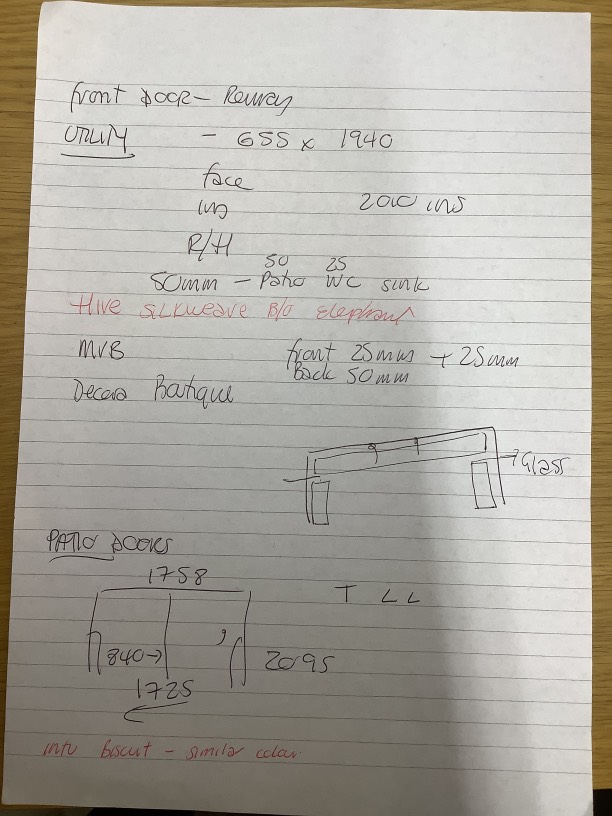 front DOOR -
UTILITY - 655 x 1940
face
ins 2010 ins
R/H
50 25
50mm - Patio WC sink
Hive SILKWEAVE B/O Elephant
MVB front 25mm + 25mm
Back 50mm
Decora Boutique
→Glass
PATIO DOORS
1758
T L L
840→ 2095
1725
intu biscuit - similar colour